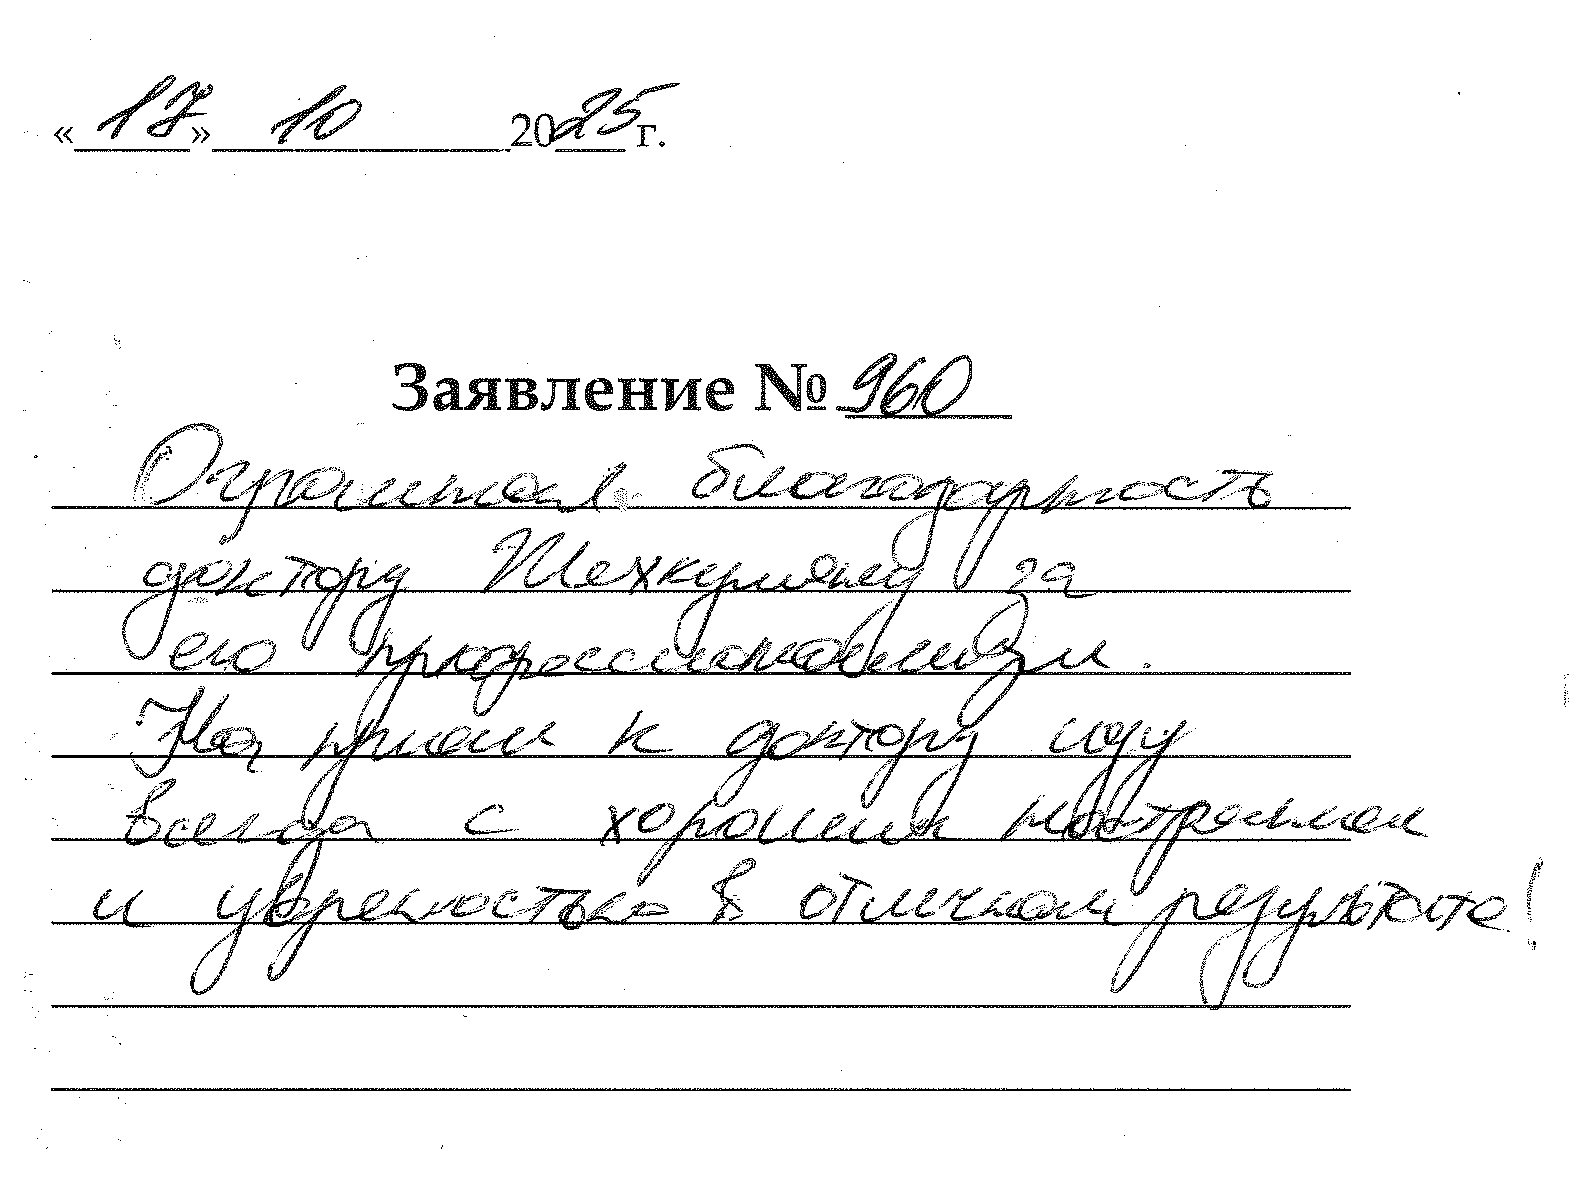 «17» 10 2025 г.
Заявление № 960
Огромная благодарность
доктору за
его профессионализм.
На прием к доктору иду
всегда с хорошим настроением
и уверенностью в отличном результате!